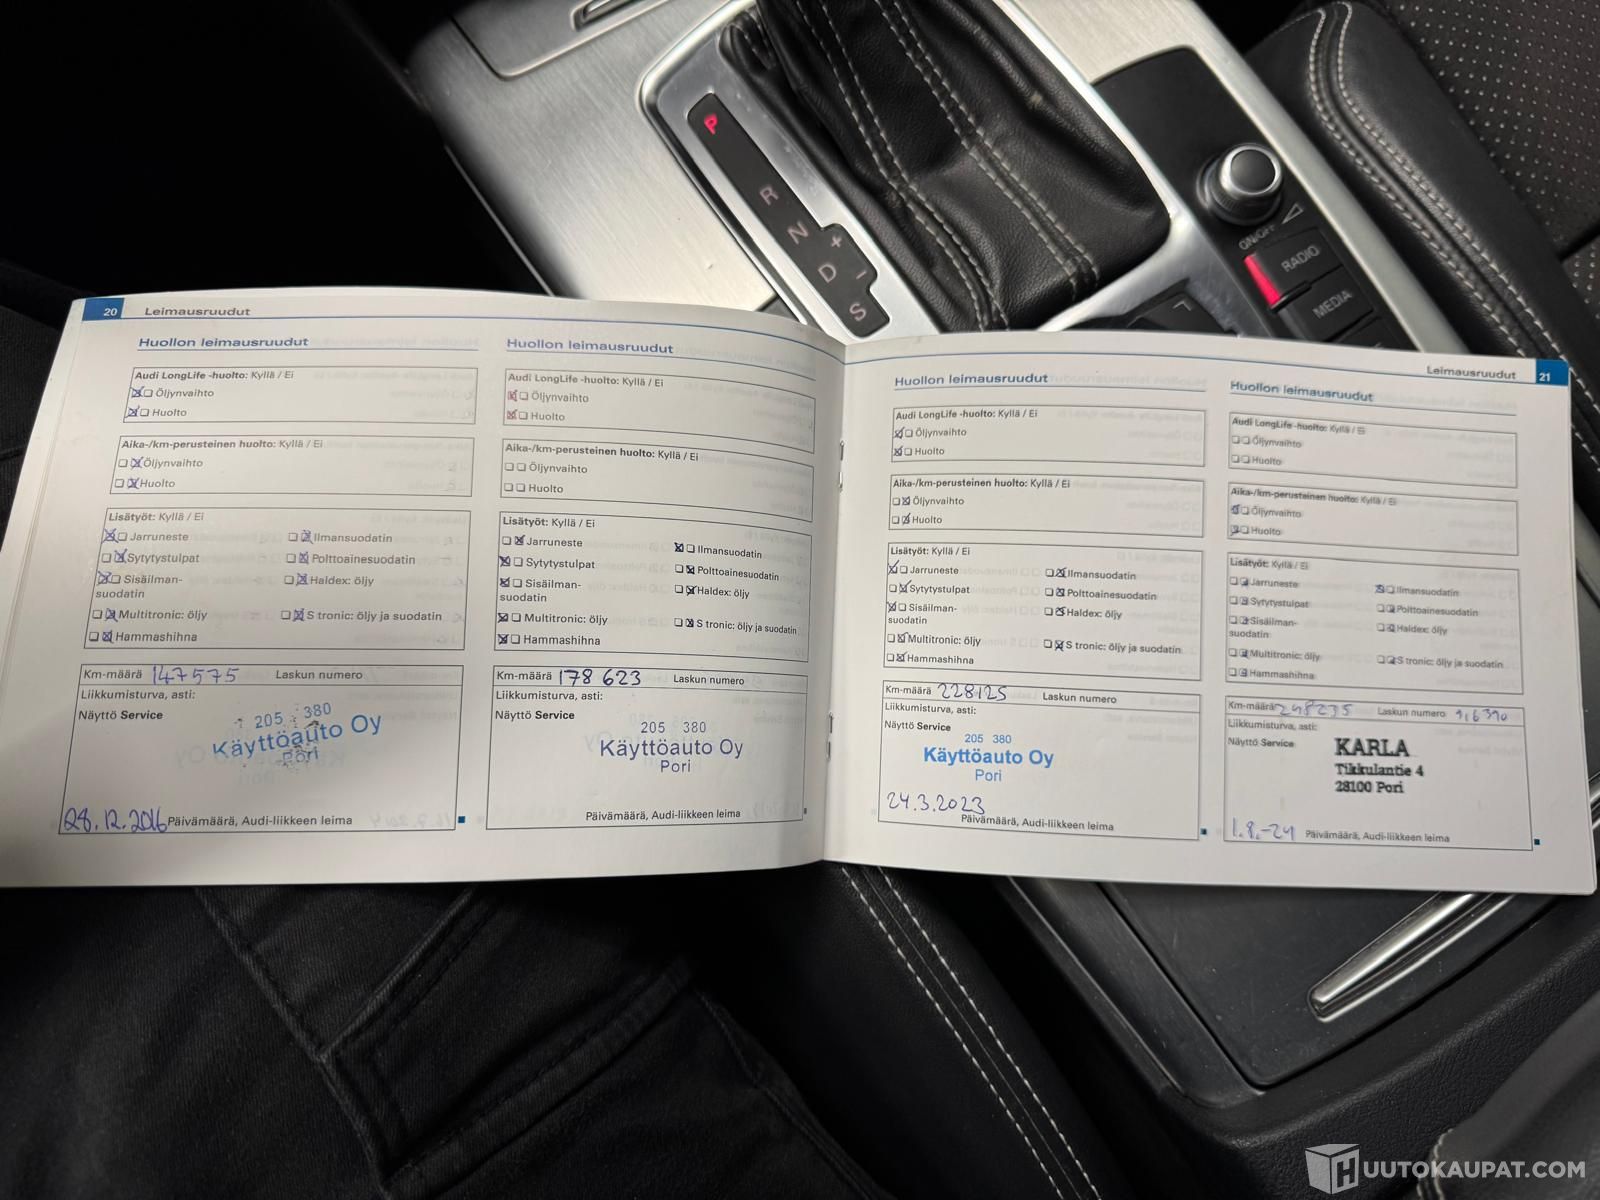 P
R
N
D
S
+
-
ON/OFF
RADIO
MEDIA
20 Leimausruudut
Huollon leimausruudut
Audi LongLife -huolto: Kyllä / Ei
Öljynvaihto
Huolto
Aika-/km-perusteinen huolto: Kyllä / Ei
Öljynvaihto
Huolto
Lisätyöt: Kyllä / Ei
Jarruneste
Ilmansuodatin
Sytytystulpat
Polttoainesuodatin
Sisäilman-
suodatin
Haldex: öljy
Multitronic: öljy
S tronic: öljy ja suodatin
Hammashihna
Km-määrä 147575 Laskun numero
Liikkumisturva, asti:
Näyttö Service
205 380
Käyttöauto Oy
Pori
28.12.2016 Päivämäärä, Audi-liikkeen leima
Huollon leimausruudut
Audi LongLife -huolto: Kyllä / Ei
Öljynvaihto
Huolto
Aika-/km-perusteinen huolto: Kyllä / Ei
Öljynvaihto
Huolto
Lisätyöt: Kyllä / Ei
Jarruneste
Ilmansuodatin
Sytytystulpat
Polttoainesuodatin
Sisäilman-
suodatin
Haldex: öljy
Multitronic: öljy
S tronic: öljy ja suodatin
Hammashihna
Km-määrä 178 623 Laskun numero
Liikkumisturva, asti:
Näyttö Service
205 380
Käyttöauto Oy
Pori
Päivämäärä, Audi-liikkeen leima
Leimausruudut 21
Huollon leimausruudut
Audi LongLife -huolto: Kyllä / Ei
Öljynvaihto
Huolto
Aika-/km-perusteinen huolto: Kyllä / Ei
Öljynvaihto
Huolto
Lisätyöt: Kyllä / Ei
Jarruneste
Ilmansuodatin
Sytytystulpat
Polttoainesuodatin
Sisäilman-
suodatin
Haldex: öljy
Multitronic: öljy
S tronic: öljy ja suodatin
Hammashihna
Km-määrä 228125 Laskun numero
Liikkumisturva, asti:
Näyttö Service
205 380
Käyttöauto Oy
Pori
24.3.2023
Päivämäärä, Audi-liikkeen leima
Huollon leimausruudut
Audi LongLife -huolto: Kyllä / Ei
Öljynvaihto
Huolto
Aika-/km-perusteinen huolto: Kyllä / Ei
Öljynvaihto
Huolto
Lisätyöt: Kyllä / Ei
Jarruneste
Ilmansuodatin
Sytytystulpat
Polttoainesuodatin
Sisäilman-
suodatin
Haldex: öljy
Multitronic: öljy
S tronic: öljy ja suodatin
Hammashihna
Km-määrä 248235 Laskun numero
Liikkumisturva, asti:
Näyttö Service
KARLA
Tikkulantie 4
28100 Pori
1.8.-24 Päivämäärä, Audi-liikkeen leima
HUUTOKAUPAT.COM